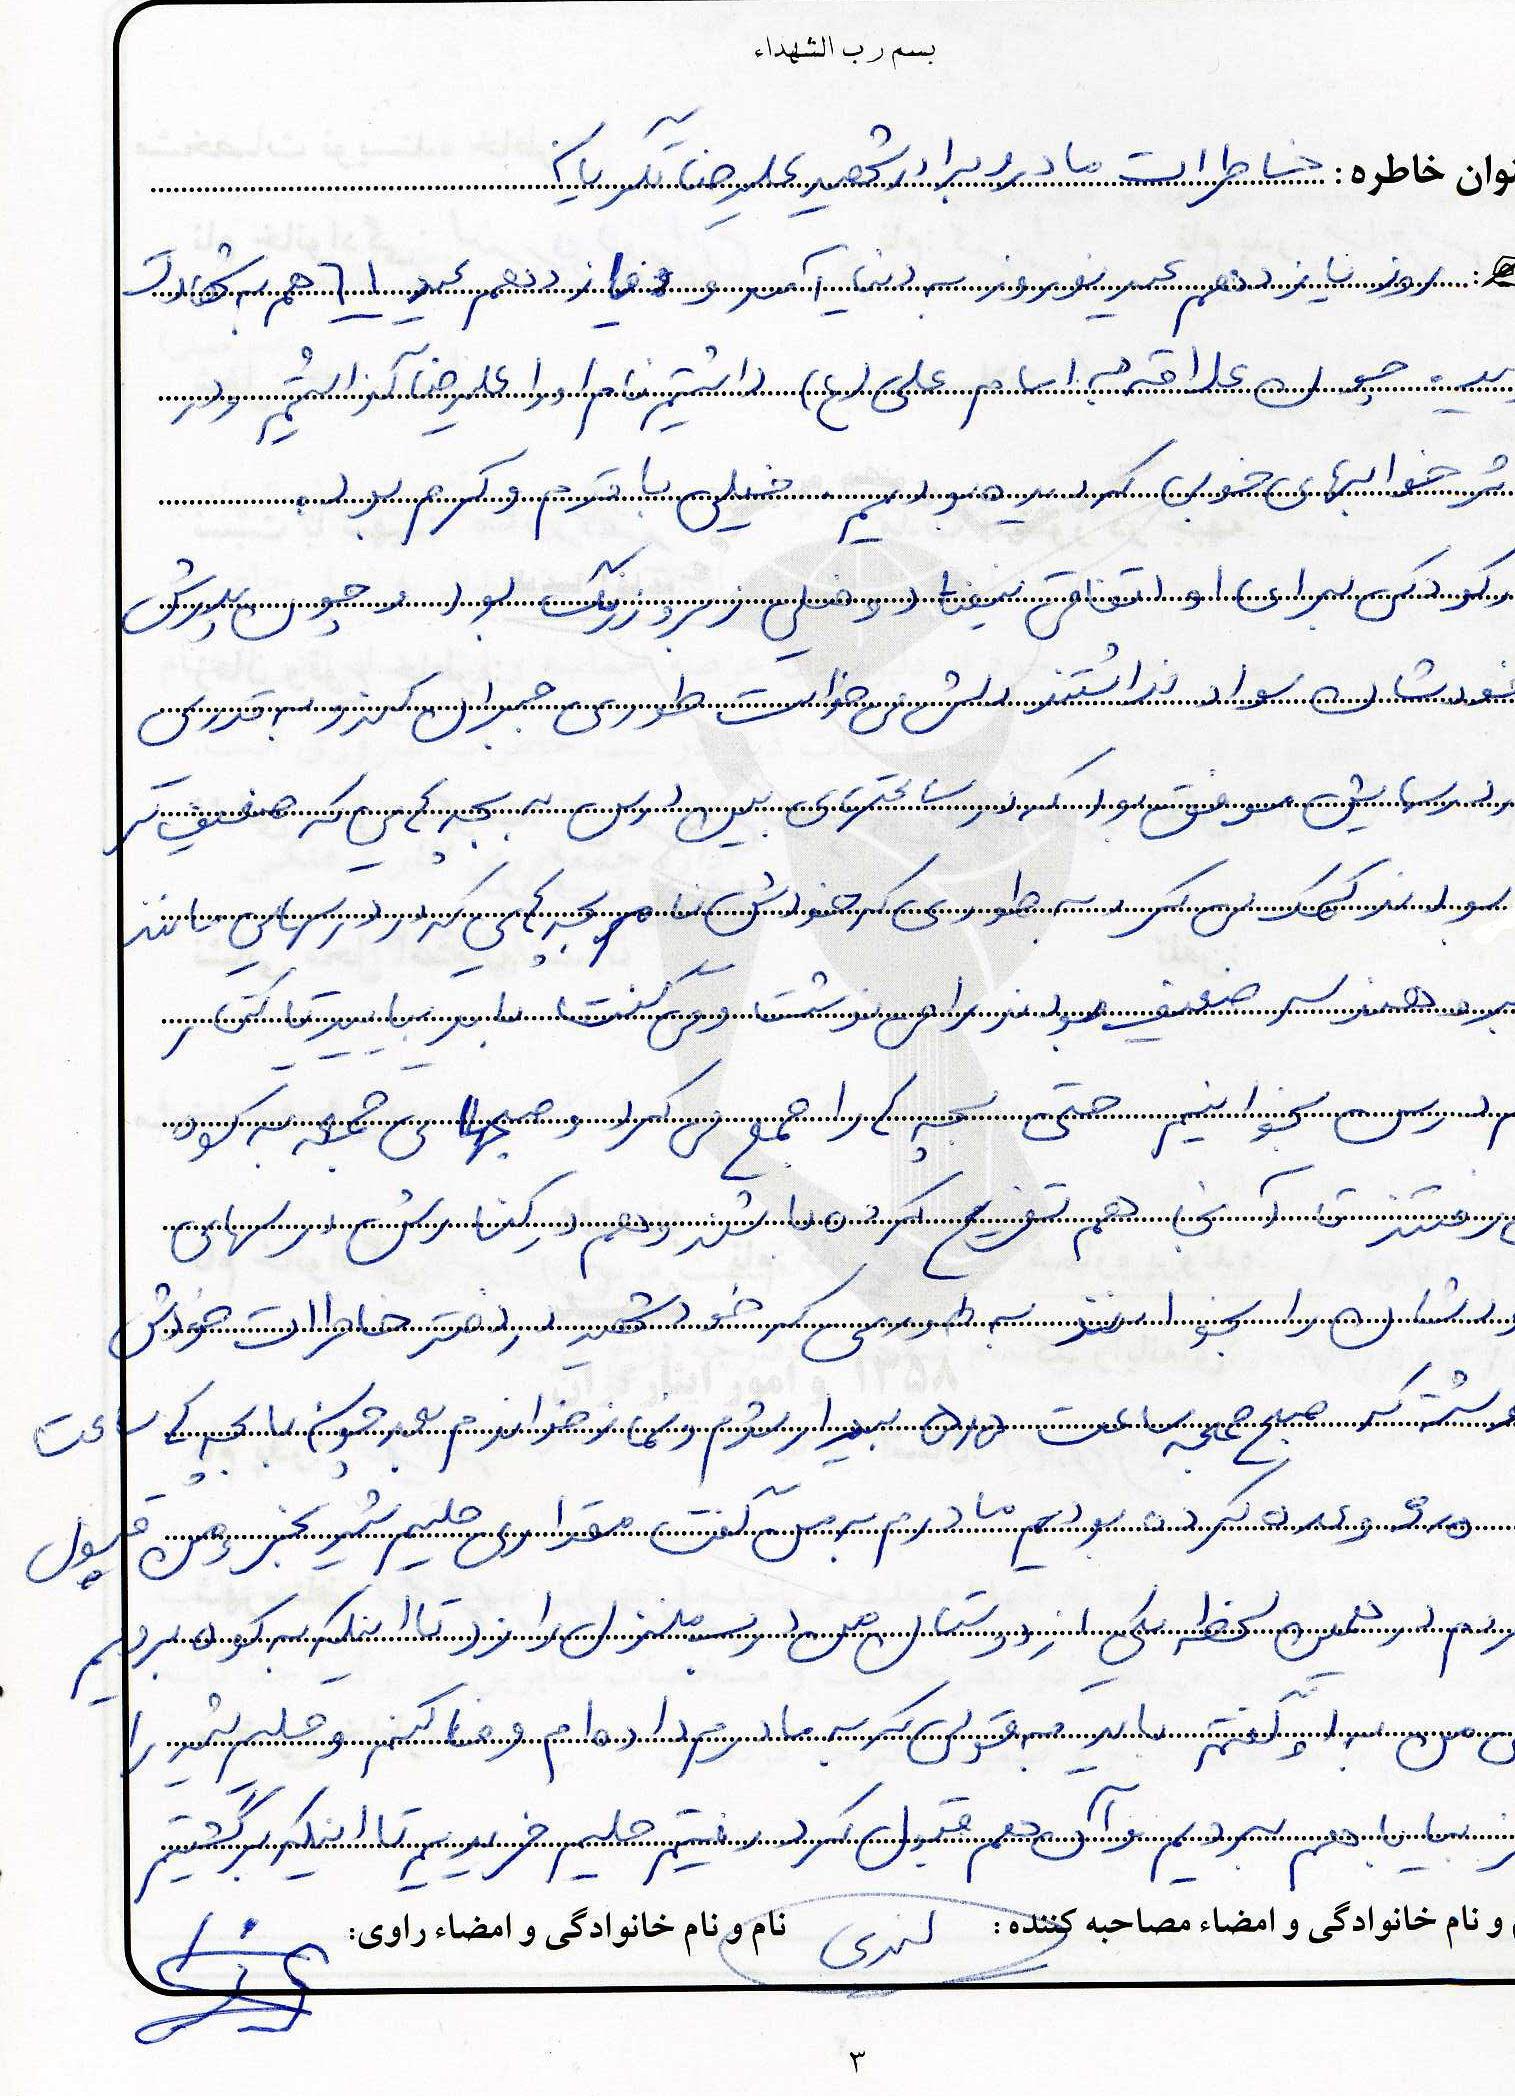 بسم رب الشهداء
نوان خاطره: خاطرات مادر و برادر شهید علیرضا
روز پانزدهم عید نوروز به دنیا آمد و پانزدهم عید ۶۱ هم به شهادت
چون علاقه به امام علی (ع) داشتیم نام او را علیرضا گذاشتیم و در
خوابهای خوبی کرده بودیم. خیلی با قدم و کرم بود.
کودکی برای او اتفاقی نیفتاد و خیلی زبر و زرنگ بود و چون پدرش
خودشان سواد نداشتند دلش می خواست طوری جبران کند و به قدری
درسهایش موفق بود که در ساعتهای بین درس به بچه هایی که ضعیف تر
بودند کمک می کرد به طوری که خودش نام بچه هایی که در درسهایی مانند
هندسه ضعیف بودند را می نوشت و می گفت باید بیایید تا کنار
م درس بخوانیم حتی بچه ها را جمع می کرد و صبحهای جمعه به کوه
رفتند تا آنجا هم تفریح کرده باشند و هم در کنارش درسهای
ودشان را بخوانند به طوری که خود شهید در دفتر خاطرات خودش
وشته که صبح جمعه ساعت بیدار شدم و نماز خواندم بعد چون با بچه ها ساعت
وعده کرده بودیم مادرم به من گفت مقداری حلیم شیر بخر و من قبول
ردم در همین لحظه یکی از دوستان من درب منزل را زد تا اینکه به کوه برویم
من به او گفتم باید به قولی که به مادرم داده ام وفا کنم و حلیم شیر را
بیا با هم برویم و آن هم قبول کرد رفتیم حلیم خریدیم تا اینکه برگشتیم
و نام خانوادگی و امضاء مصاحبه کننده:
نام و نام خانوادگی و امضاء راوی:
۳